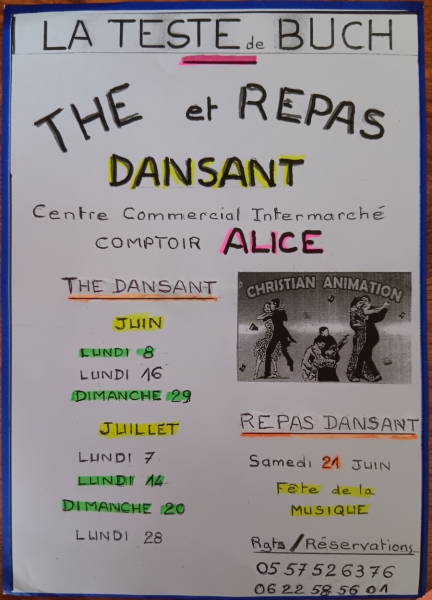 LA TESTE de BUCH
THE et REPAS
DANSANT
Centre Commercial Intermarché
COMPTOIR ALICE
THE DANSANT
JUIN
LUNDI 8
LUNDI 16
DIMANCHE 29
JUILLET
LUNDI 7
LUNDI 14
DIMANCHE 20
LUNDI 28
CHRISTIAN ANIMATION
REPAS DANSANT
Samedi 21 JUIN
Fête de la
MUSIQUE
Rgts/Réservations
05 57 52 63 76
06 22 58 56 01